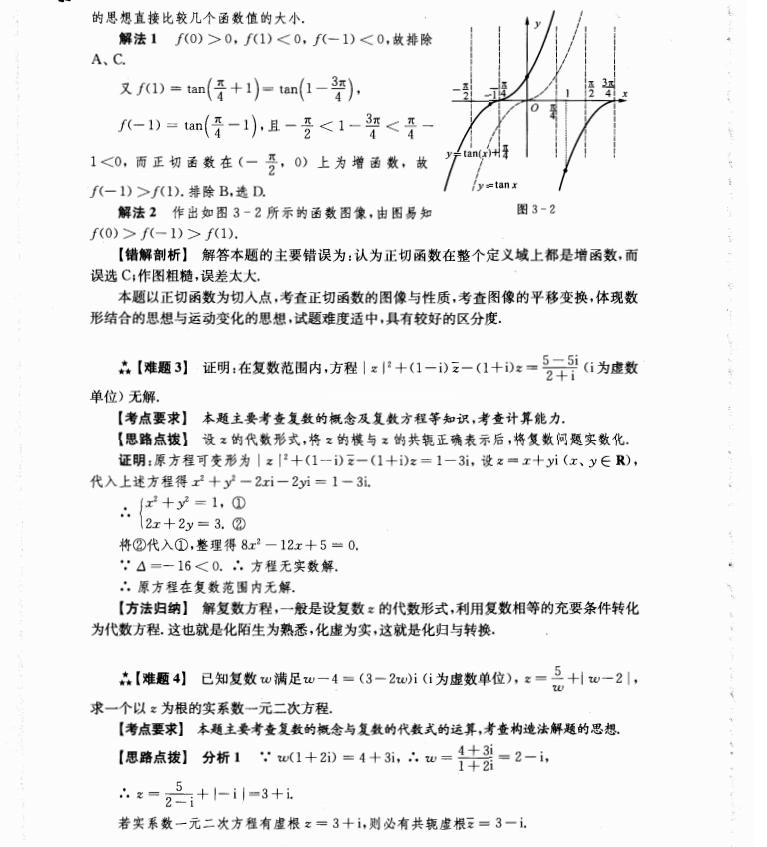 的思想直接比较几个函数值的大小.
解法1 f(0)>0,f(1)<0,f(-1)<0,故排除
A、C.
又 f(1)=tan(π/4+1)=tan(1-3π/4),
f(-1)=tan(π/4-1),且-π/2<1-3π/4<π/4-
1<0,而正切函数在(-π/2,0)上为增函数,故
f(-1)>f(1).排除B,选D.
解法2 作出如图3-2所示的函数图像,由图易知
f(0)>f(-1)>f(1).
y
-π/2 -1 π/4 O π/4 1 π/2 3π/4 x
y=tan(x)+π/4
y=tan x
图3-2
【错解剖析】 解答本题的主要错误为:认为正切函数在整个定义域上都是增函数,而
误选C;作图粗糙,误差太大.
本题以正切函数为切入点,考查正切函数的图像与性质,考查图像的平移变换,体现数
形结合的思想与运动变化的思想,试题难度适中,具有较好的区分度.
【难题3】 证明:在复数范围内,方程|z|²+(1-i)z̄-(1+i)z=(5-5i)/(2+i)(i为虚数
单位)无解.
【考点要求】 本题主要考查复数的概念及复数方程等知识,考查计算能力.
【思路点拨】 设z的代数形式,将z的模与z的共轭正确表示后,将复数问题实数化.
证明:原方程可变形为|z|²+(1-i)z̄-(1+i)z=1-3i,设z=x+yi(x、y∈R),
代入上述方程得x²+y²-2xi-2yi=1-3i.
∴ {x²+y²=1,①
2x+2y=3.②
将②代入①,整理得8x²-12x+5=0.
∵ Δ=-16<0.∴ 方程无实数解.
∴ 原方程在复数范围内无解.
【方法归纳】 解复数方程,一般是设复数z的代数形式,利用复数相等的充要条件转化
为代数方程.这也就是化陌生为熟悉,化虚为实,这就是化归与转换.
【难题4】 已知复数w满足w-4=(3-2w)i(i为虚数单位),z=5/w+|w-2|,
求一个以z为根的实系数一元二次方程.
【考点要求】 本题主要考查复数的概念与复数的代数式的运算,考查构造法解题的思想.
【思路点拨】 分析1 ∵ w(1+2i)=4+3i,∴ w=(4+3i)/(1+2i)=2-i,
∴ z=5/(2-i)+|-i|=3+i.
若实系数一元二次方程有虚根z=3+i,则必有共轭虚根z̄=3-i.